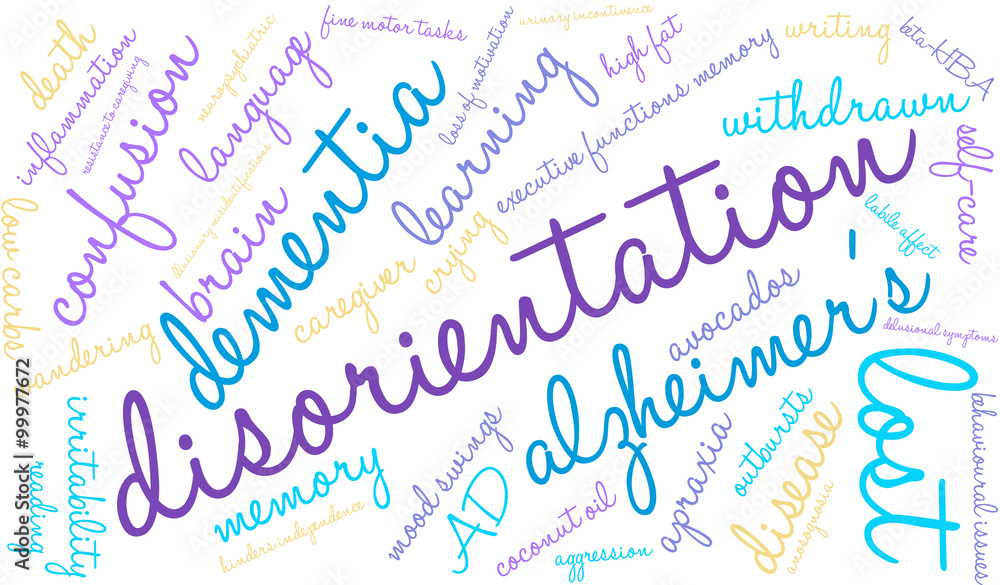 death
inflammation
resistance to caregiving
confusion
neuropsychiatric
language
fine motor tasks
urinary incontinence
loss of motivation
high fat
writing
beta-HBA
dementia
learning
executive functions memory
withdrawn
self-care
illusionary misidentifications
brain
low carbs
caregiver
crying
disorientation
labile affect
wandering
avocados
alzheimer's
delusional symptoms
lost
irritability
reading
memory
hinders independence
mood swings
AD
coconut oil
aggression
apraxia
outbursts
disease
anosognosia
behavioural issues
Adobe Stock | #99977672
Adobe Stock